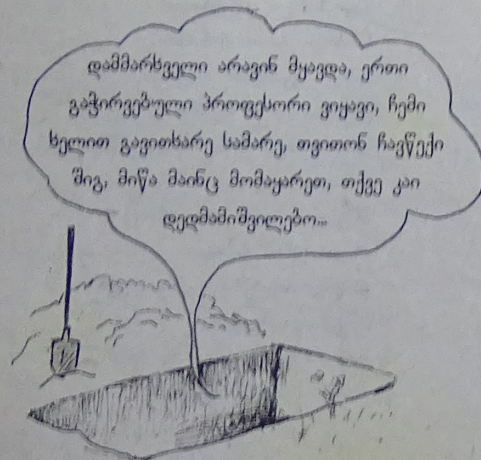 დამმარხველი არავინ მყავდა, ერთი
გაჭირვებული პროფესორი ვიყავი, ჩემი
ხელით გავითხარე სამარე, თვითონ ჩავწექი
შიგ, მიწა მაინც მომაყარეთ, თქვე კაი
დედმამიშვილებო...